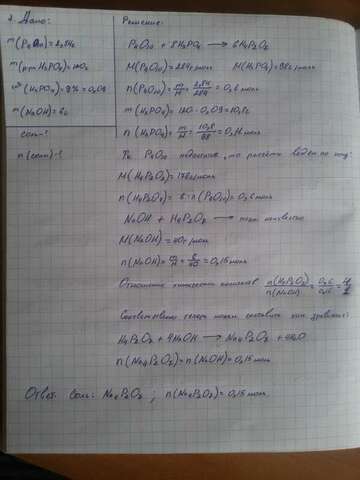 7. Дано:
m(P4O10)=2,84г
m(р-ра H3PO4)=120г
ω(H3PO4)=9%=0,09
m(NaOH)=6г
соль-?
n(соли)-?
Решение:
P4O10 + 8H3PO4 → 6H4P2O7
M(P4O10)=284г/моль M(H3PO4)=98г/моль
n(P4O10)=m/M=2,84/284=0,01моль
m(H3PO4)=120·0,09=10,8г
n(H3PO4)=m/M=10,8/98=0,11моль
P4O10 то расчёты ведём по
M(H4P2O7)=178г/моль
n(H4P2O7)=6·n(P4O10)=0,6моль
NaOH + H4P2O7 → пока неизвестно
M(NaOH)=40г/моль
n(NaOH)=m/M=6/40=0,15моль
Отношение n(H4P2O7)/n(NaOH)=0,6/0,15=4/1
Соответственно теперь можем составить уравнение:
H4P2O7 + 4NaOH → Na4P2O7 + 4H2O
n(Na4P2O7)=n(NaOH)=0,15моль
Ответ: соль: Na4P2O7; n(Na4P2O7)=0,15моль